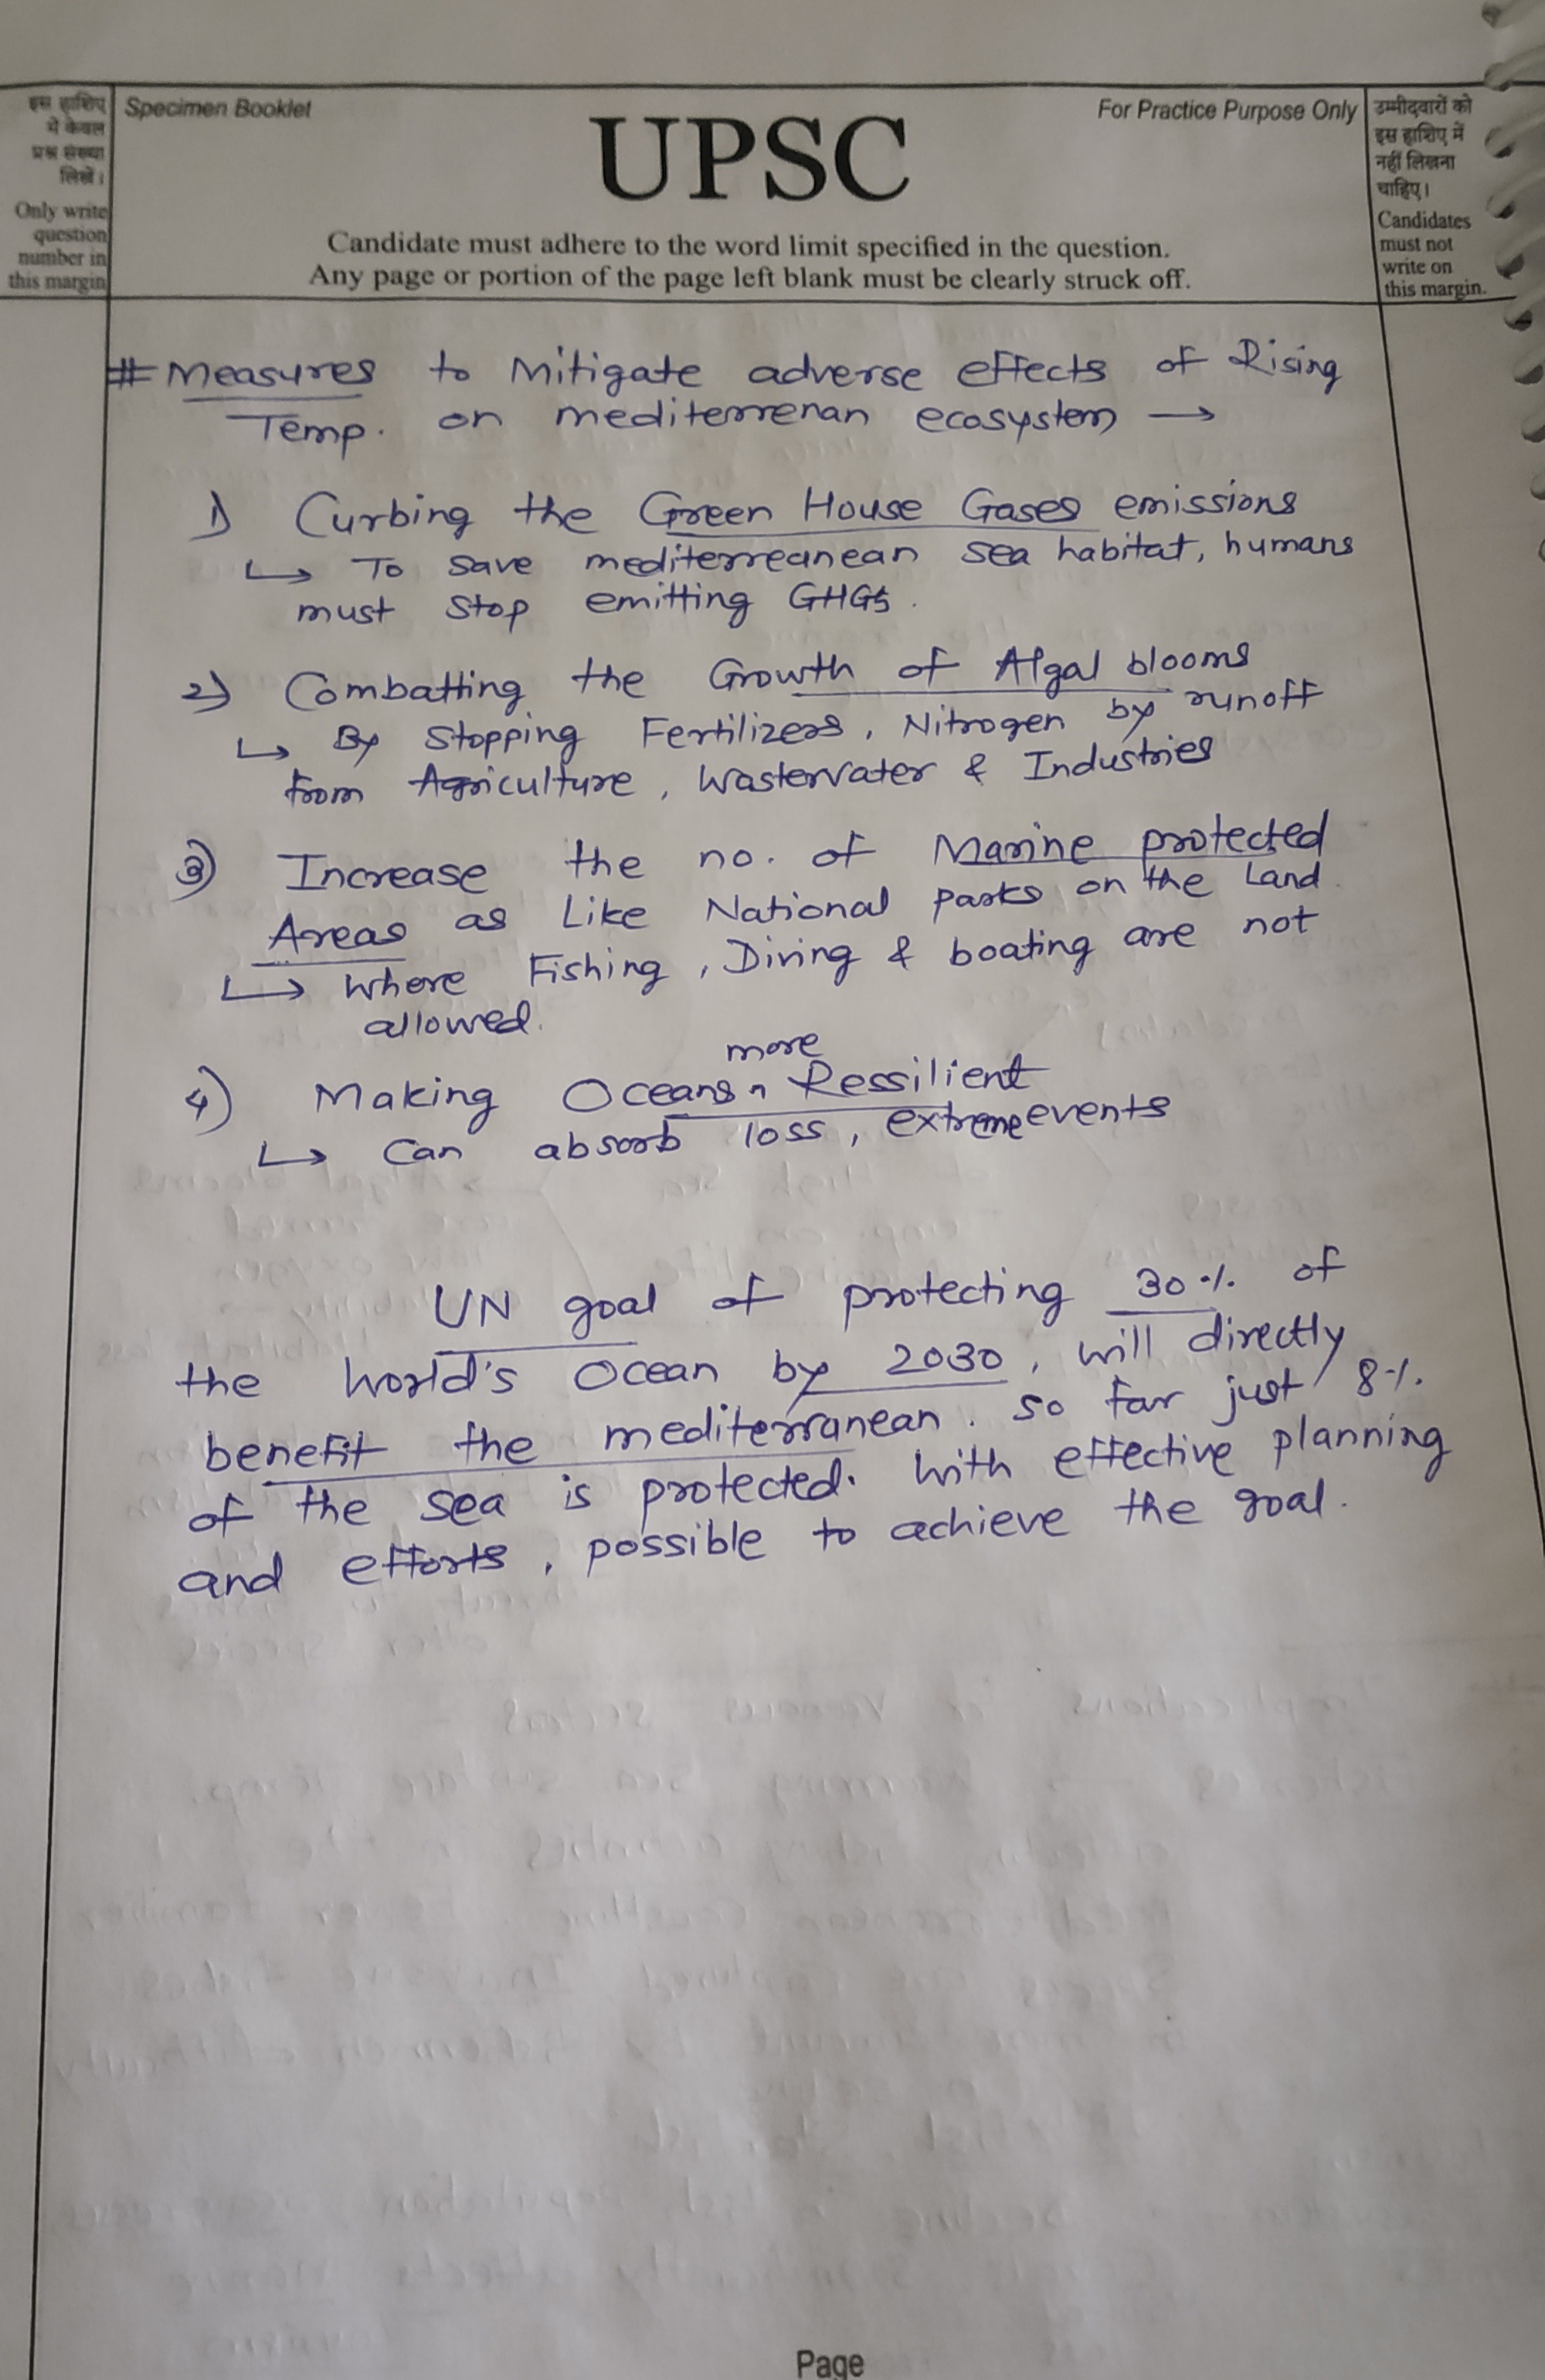 इस हाशिए
में केवल
प्रश्न संख्या
लिखें।
Only write
question
number in
this margin
Specimen Booklet
For Practice Purpose Only
UPSC
Candidate must adhere to the word limit specified in the question.
Any page or portion of the page left blank must be clearly struck off.
उम्मीदवारों को
इस हाशिए में
नहीं लिखना
चाहिए।
Candidates
must not
write on
this margin.
# Measures to Mitigate adverse effects of Rising
Temp. on mediterrenan ecosystem →
1) Curbing the Green House Gases emissions
↳ To save mediterreanean sea habitat, humans
must stop emitting GHGs.
2) Combatting the Growth of Algal blooms
↳ By stopping Fertilizers, Nitrogen by runoff
from Agriculture, Wastervater & Industries
3) Increase the no. of Marine protected
Areas as Like National parks on the Land
↳ where Fishing, Diving & boating are not
allowed.
more
4) Making Oceans Ressilient
↳ Can absorb loss, extreme events
UN goal of protecting 30% of
the World's Ocean by 2030, will directly
benefit the mediterranean. So far just 8%
of the sea is protected. With effective planning
and efforts, possible to achieve the goal.
Page